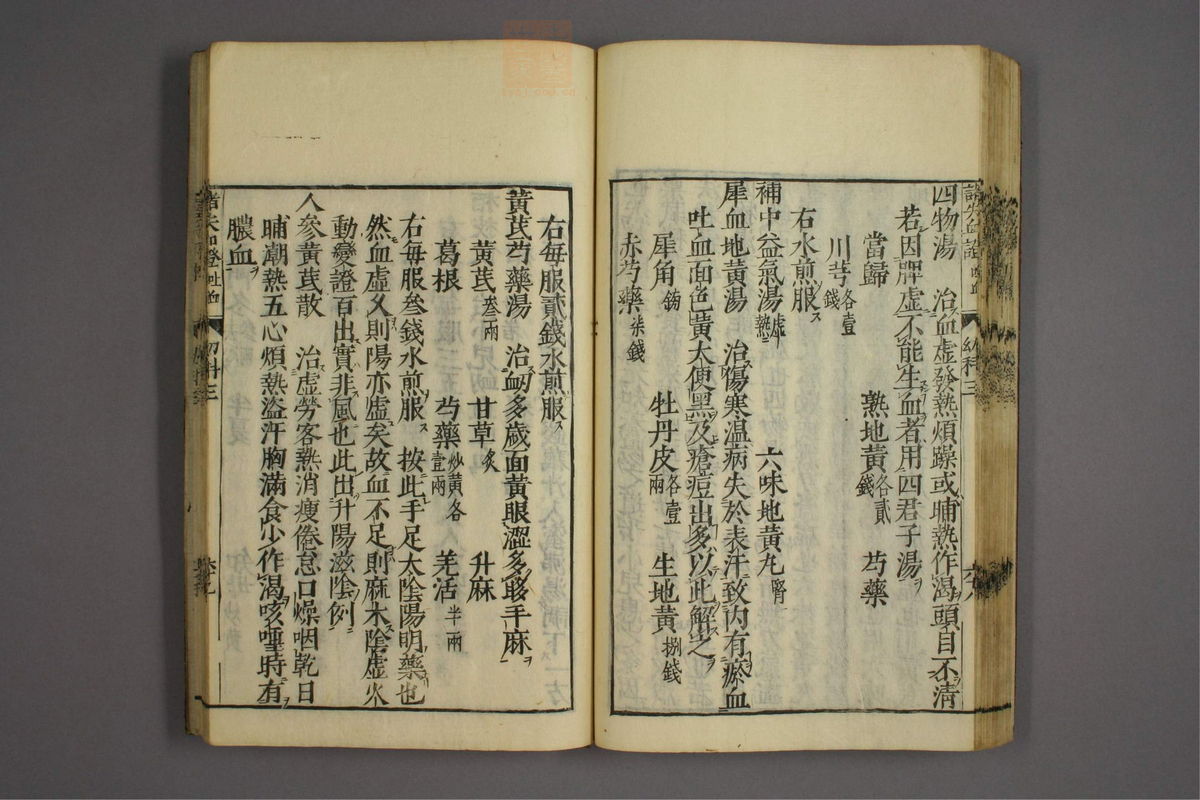 四物湯　治血虛發熱煩躁或晡熱作渴頭目不清
若因脾虛不能生血者用四君子湯
當歸　熟地黃各貳錢　芍藥
川芎各壹錢
右水煎服
補中益氣湯虛熱　六味地黃丸腎
犀血地黃湯　治傷寒溫病失於表汗致內有瘀血
吐血面色黃大便黑及瘡痘出多以此解之
犀角　牡丹皮各壹兩　生地黃捌錢
赤芍藥柒錢
右每服貳錢水煎服
黃芪芍藥湯　治衂血多歲面黃眼澀多眵手麻
黃芪叁兩　甘草炙　升麻
葛根　芍藥炒黃各壹兩　羌活半兩
右每服叁錢水煎服　按此手足太陰陽明藥也
然血虛久則陽亦虛矣故血不足則麻木陰虛火
動變證百出實非風也此出升陽滋陰例
人參黃芪散　治虛勞客熱消瘦倦怠口燥咽乾日
晡潮熱五心煩熱盜汗胸滿食少作渴咳嗽時有
膿血
幼科三